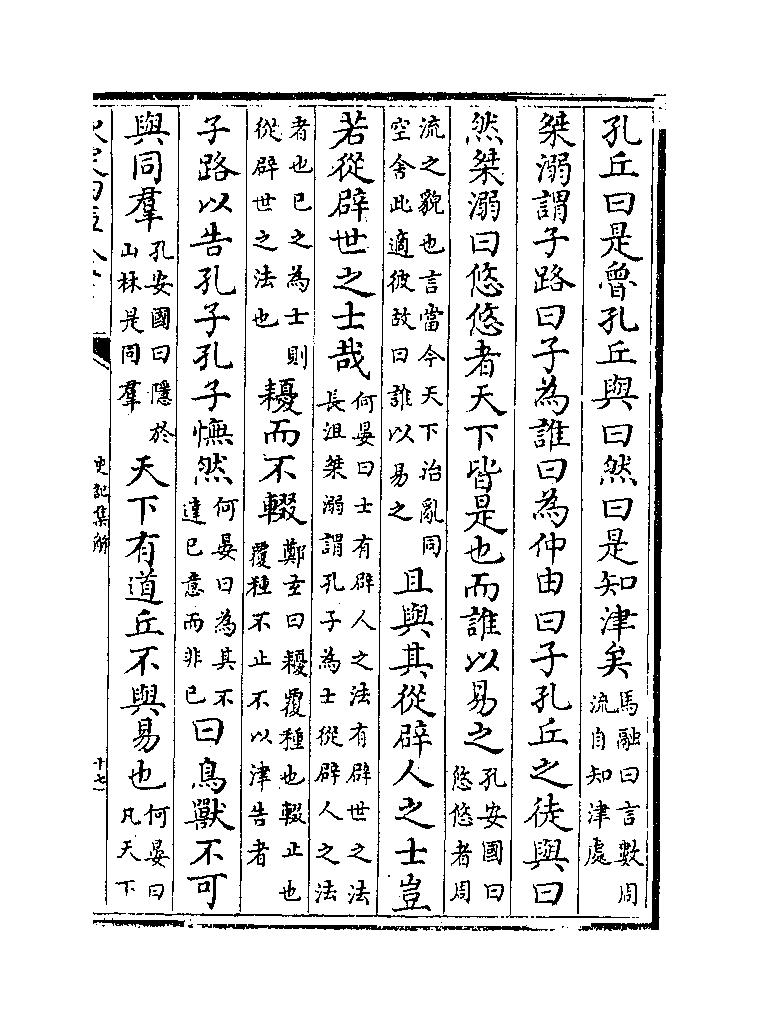 孔丘曰是魯孔丘與曰然曰是知津矣馬融曰言數周流自知津處
桀溺謂子路曰子為誰曰為仲由曰子孔丘之徒與曰
然桀溺曰悠悠者天下皆是也而誰以易之孔安國曰悠悠者周
流之貌也言當今天下治亂同空舍此適彼故曰誰以易之且與其從辟人之士豈
若從辟世之士哉何晏曰士有辟人之法有辟世之法長沮桀溺謂孔子為士從辟人之法
者也已之為士則從辟世之法也耰而不輟鄭玄曰耰覆種也輟止也覆種不止不以津告者
子路以告孔子孔子憮然何晏曰為其不達已意而非已曰鳥獸不可
與同羣孔安國曰隱於山林是同羣天下有道丘不與易也何晏曰凡天下
史記集解
十七